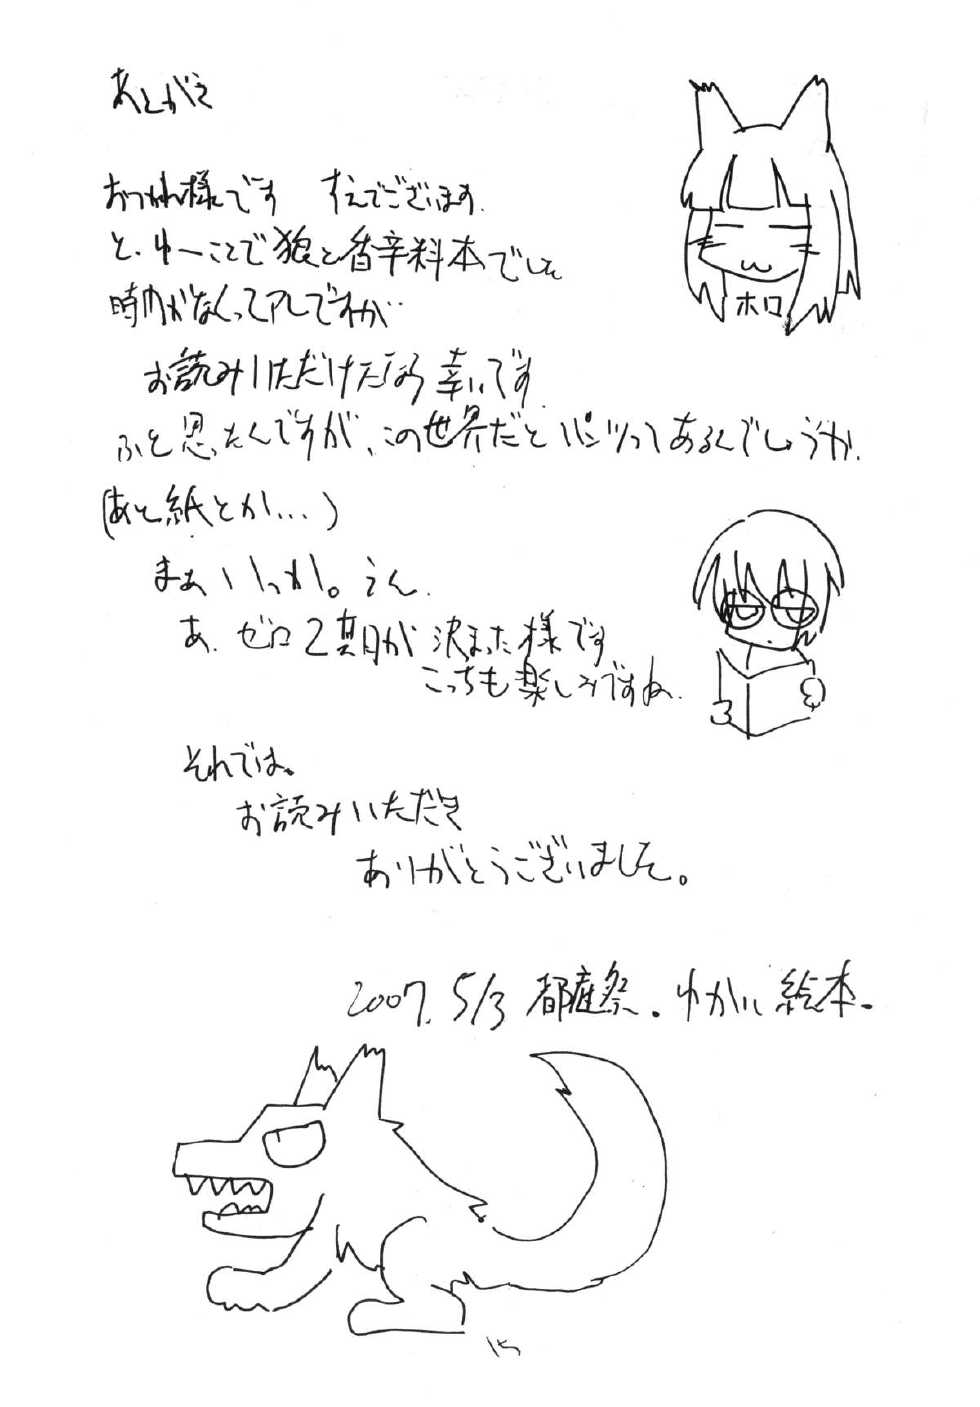 あとがき
おつかれ様です すえでございます。
と、ゆーことで狼と香辛料本でした
時間がなくってアレですが…
お読みいただけたなら幸いです
ふと思ったんですが、この世界だとパンツってあるんでしょうか。
(あと紙とか…)
まぁいっか。うん。
あ、ゼロ2期が決まった様です
こっちも楽しみですね。
それでは。
お読みいただき
ありがとうございました。
ホロ
2007. 5/3 都産祭。ゆかいに絵本。
15